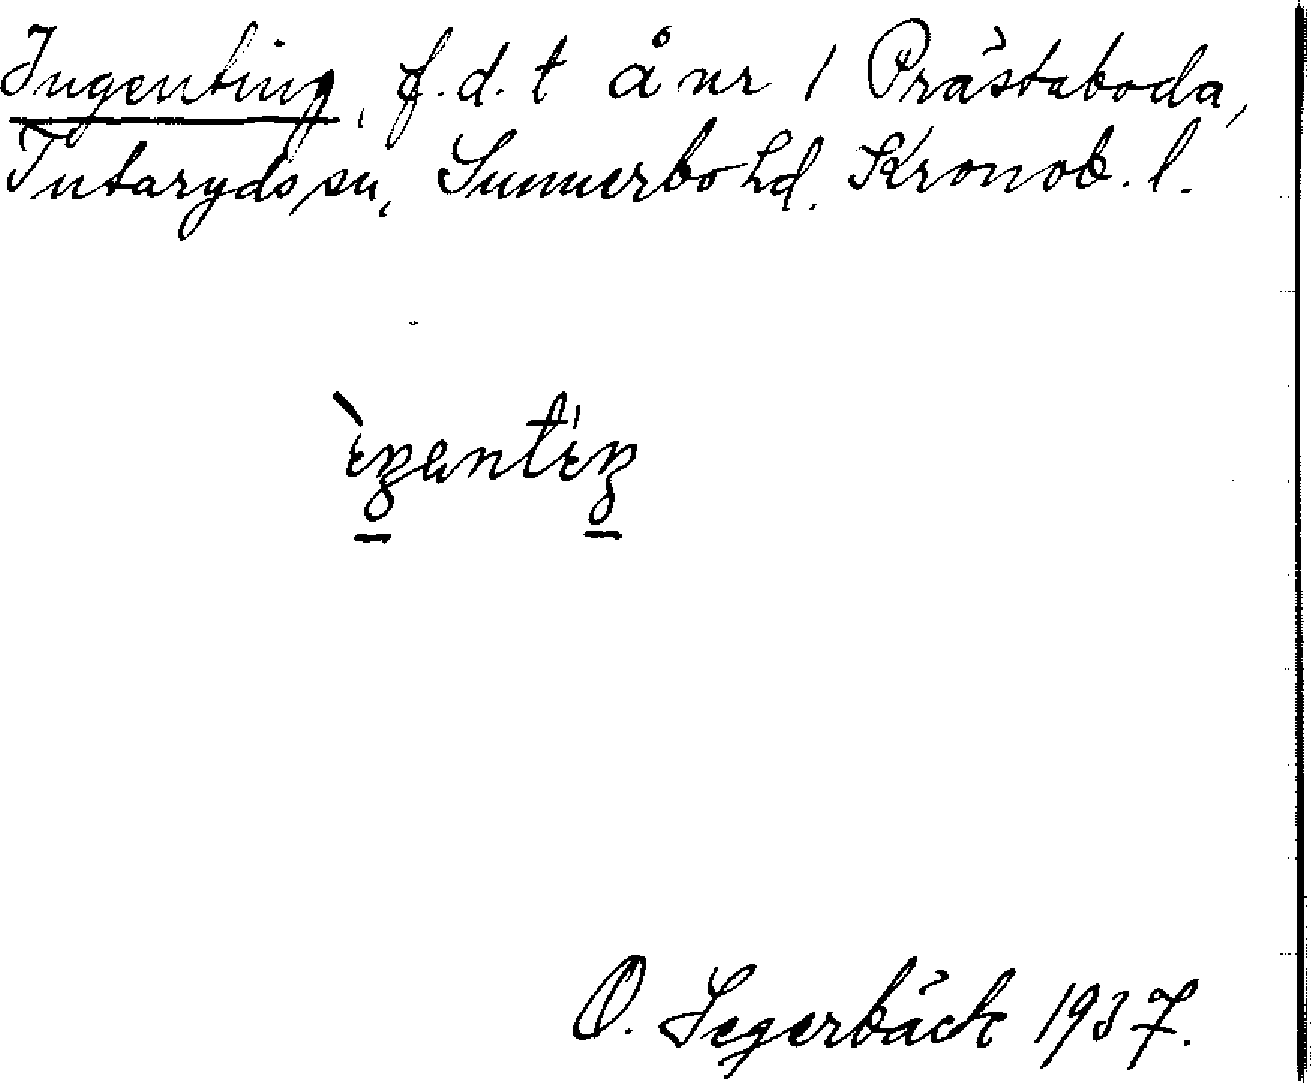 Ingenting, f.d. t å nr 1 Prästaboda,
Tutaryds sn, Sunnerbo hd. Kronob. l.
O. Segerbäck 1937.